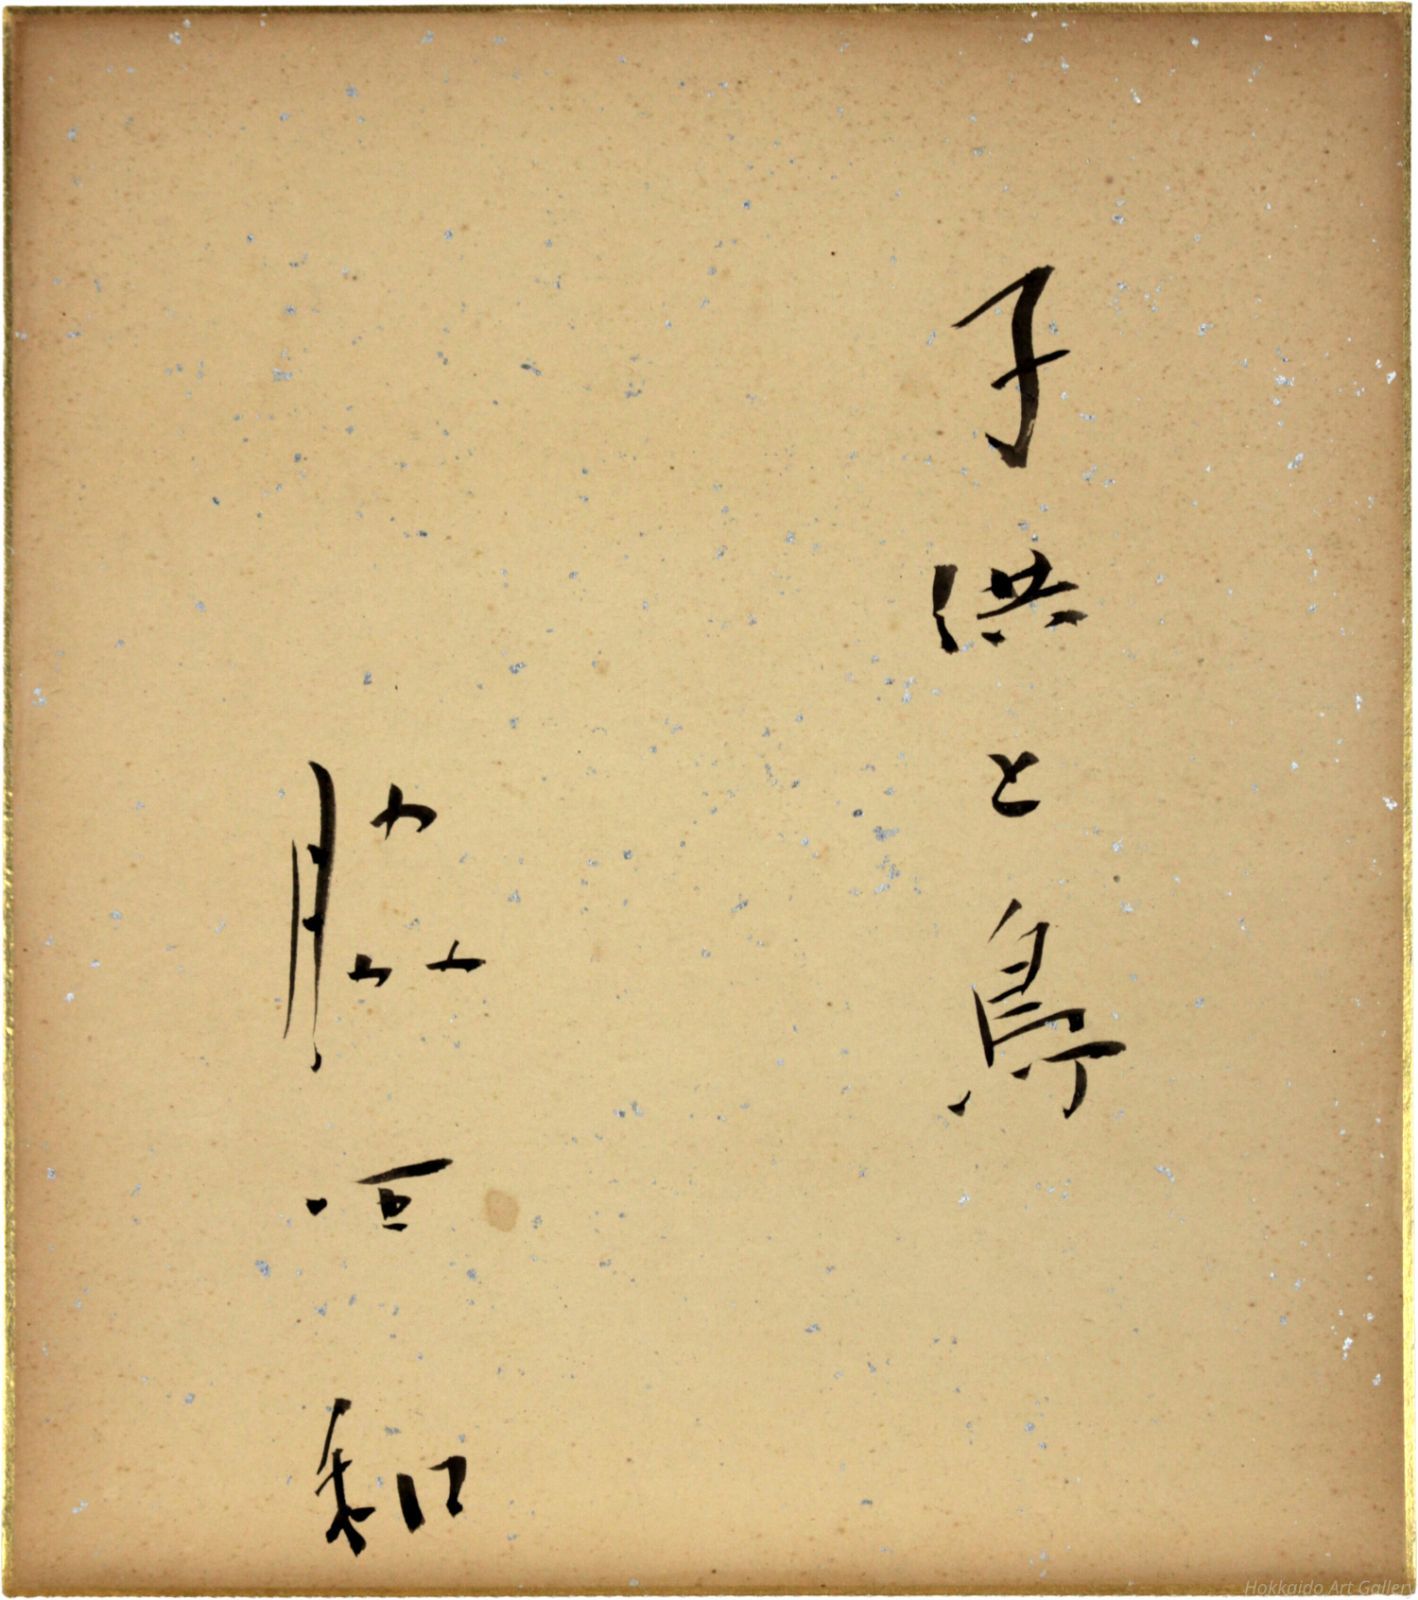 子供と鳥
脇田和
Hokkaido Art Gallery